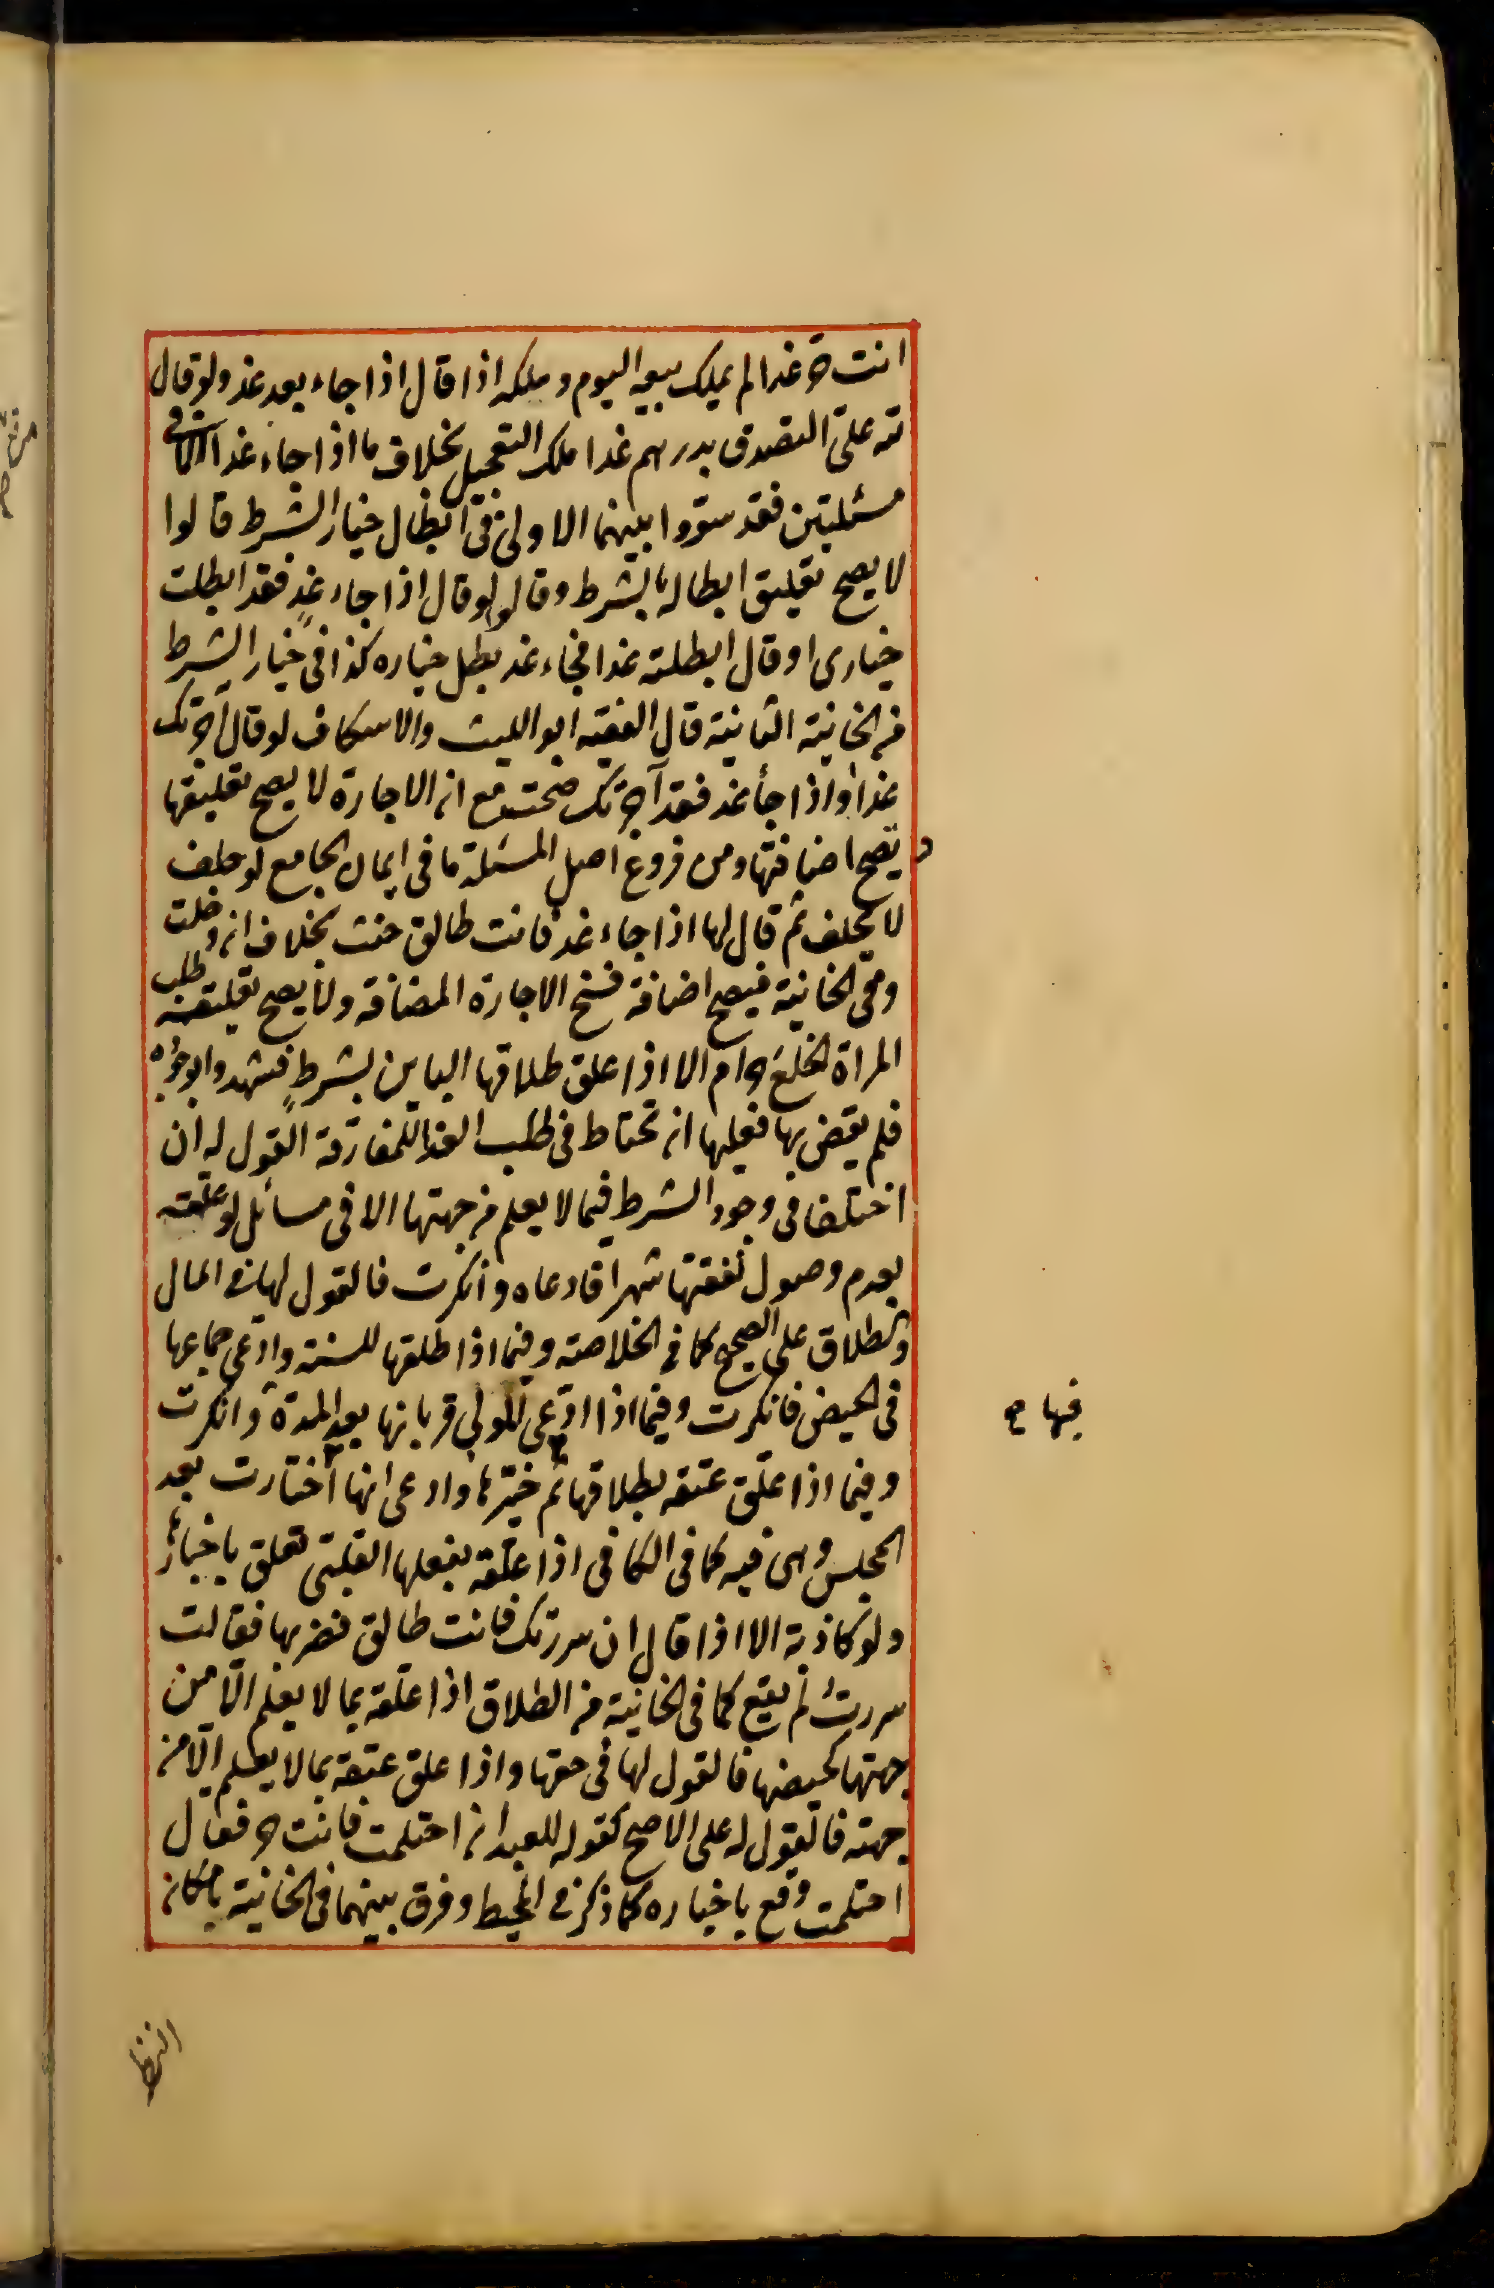 انت حر غدا لم يملك بيعه اليوم وملكه اذا قال اذا جاء بعد غد ولو قال
لله على التصدق بدرهم غدا ملك التعجيل بخلاف ما اذا جاء غد الا فى
مسئلتين فقد سووا بينهما الاولى فى ابطال خيار الشرط قالوا
لا يصح تعليق ابطاله بالشرط وقالوا لو قال اذا جاء غد فقد ابطلت
خيارى او قال ابطلته غدا فجاء غد بطل خياره كذا فى خيار الشرط
من الخانية الثانية قال الفقيه ابو الليث والاسكاف لو قال آجرتك
غدا او اذا جأ غد فقد آجرتك صحت مع ان الاجارة لا يصح تعليقها
و تصح اضافتها ومن فروع اصل المسئلة ما فى ايمان الجامع لو حلف
لا يحلف ثم قال لها اذا جاء غد فانت طالق حنث بخلاف ان دخلت
وفى الخانية فيصح اضافة فسخ الاجارة المضافة ولا يصح تعليقه طلب
المراة الخلع حرام الا اذا علق طلاقها الباين بشرط فشهدوا بوجوده
فلم يقض بها فعليها ان تحتاط فى طلب الفدا للمفارقة القول له ان
اختلفا فى وجود الشرط فيما لا يعلم من جهتها الا فى مسائل لو علقه
بعدم وصول نفقتها شهرا فادعاه وانكرت فالقول لها فى المال
والطلاق على الصحيح كما فى الخلاصة وفيما اذا طلقها للسنة وادعى جماعها
فى الحيض فانكرت وفيما اذا ادعى المولى قربانها بعد المدة وانكرت
فيها ص
وفيما اذا علق عتقه بطلاقها ثم خيرها وادعى انها اختارت بعد
المجلس وهى فيه كما فى الكافى اذا علقه بفعلها القلبى تعلق باخبارها
ولو كاذبة الا اذا قال ان سررتك فانت طالق فضربها فقالت
سررت لم يقع كما فى الخانية من الطلاق اذا علقه بما لا يعلم الا من
جهتها كحيضها فالقول لها فى حقها واذا علق عتقه بما لا يعلم الا من
جهته فالقول له على الاصح كقوله للعبد ان احتلمت فانت حر فقال
احتلمت وقع باخباره كما ذكر فى المحيط وفرق بينهما فى الخانية بامكان
النظر